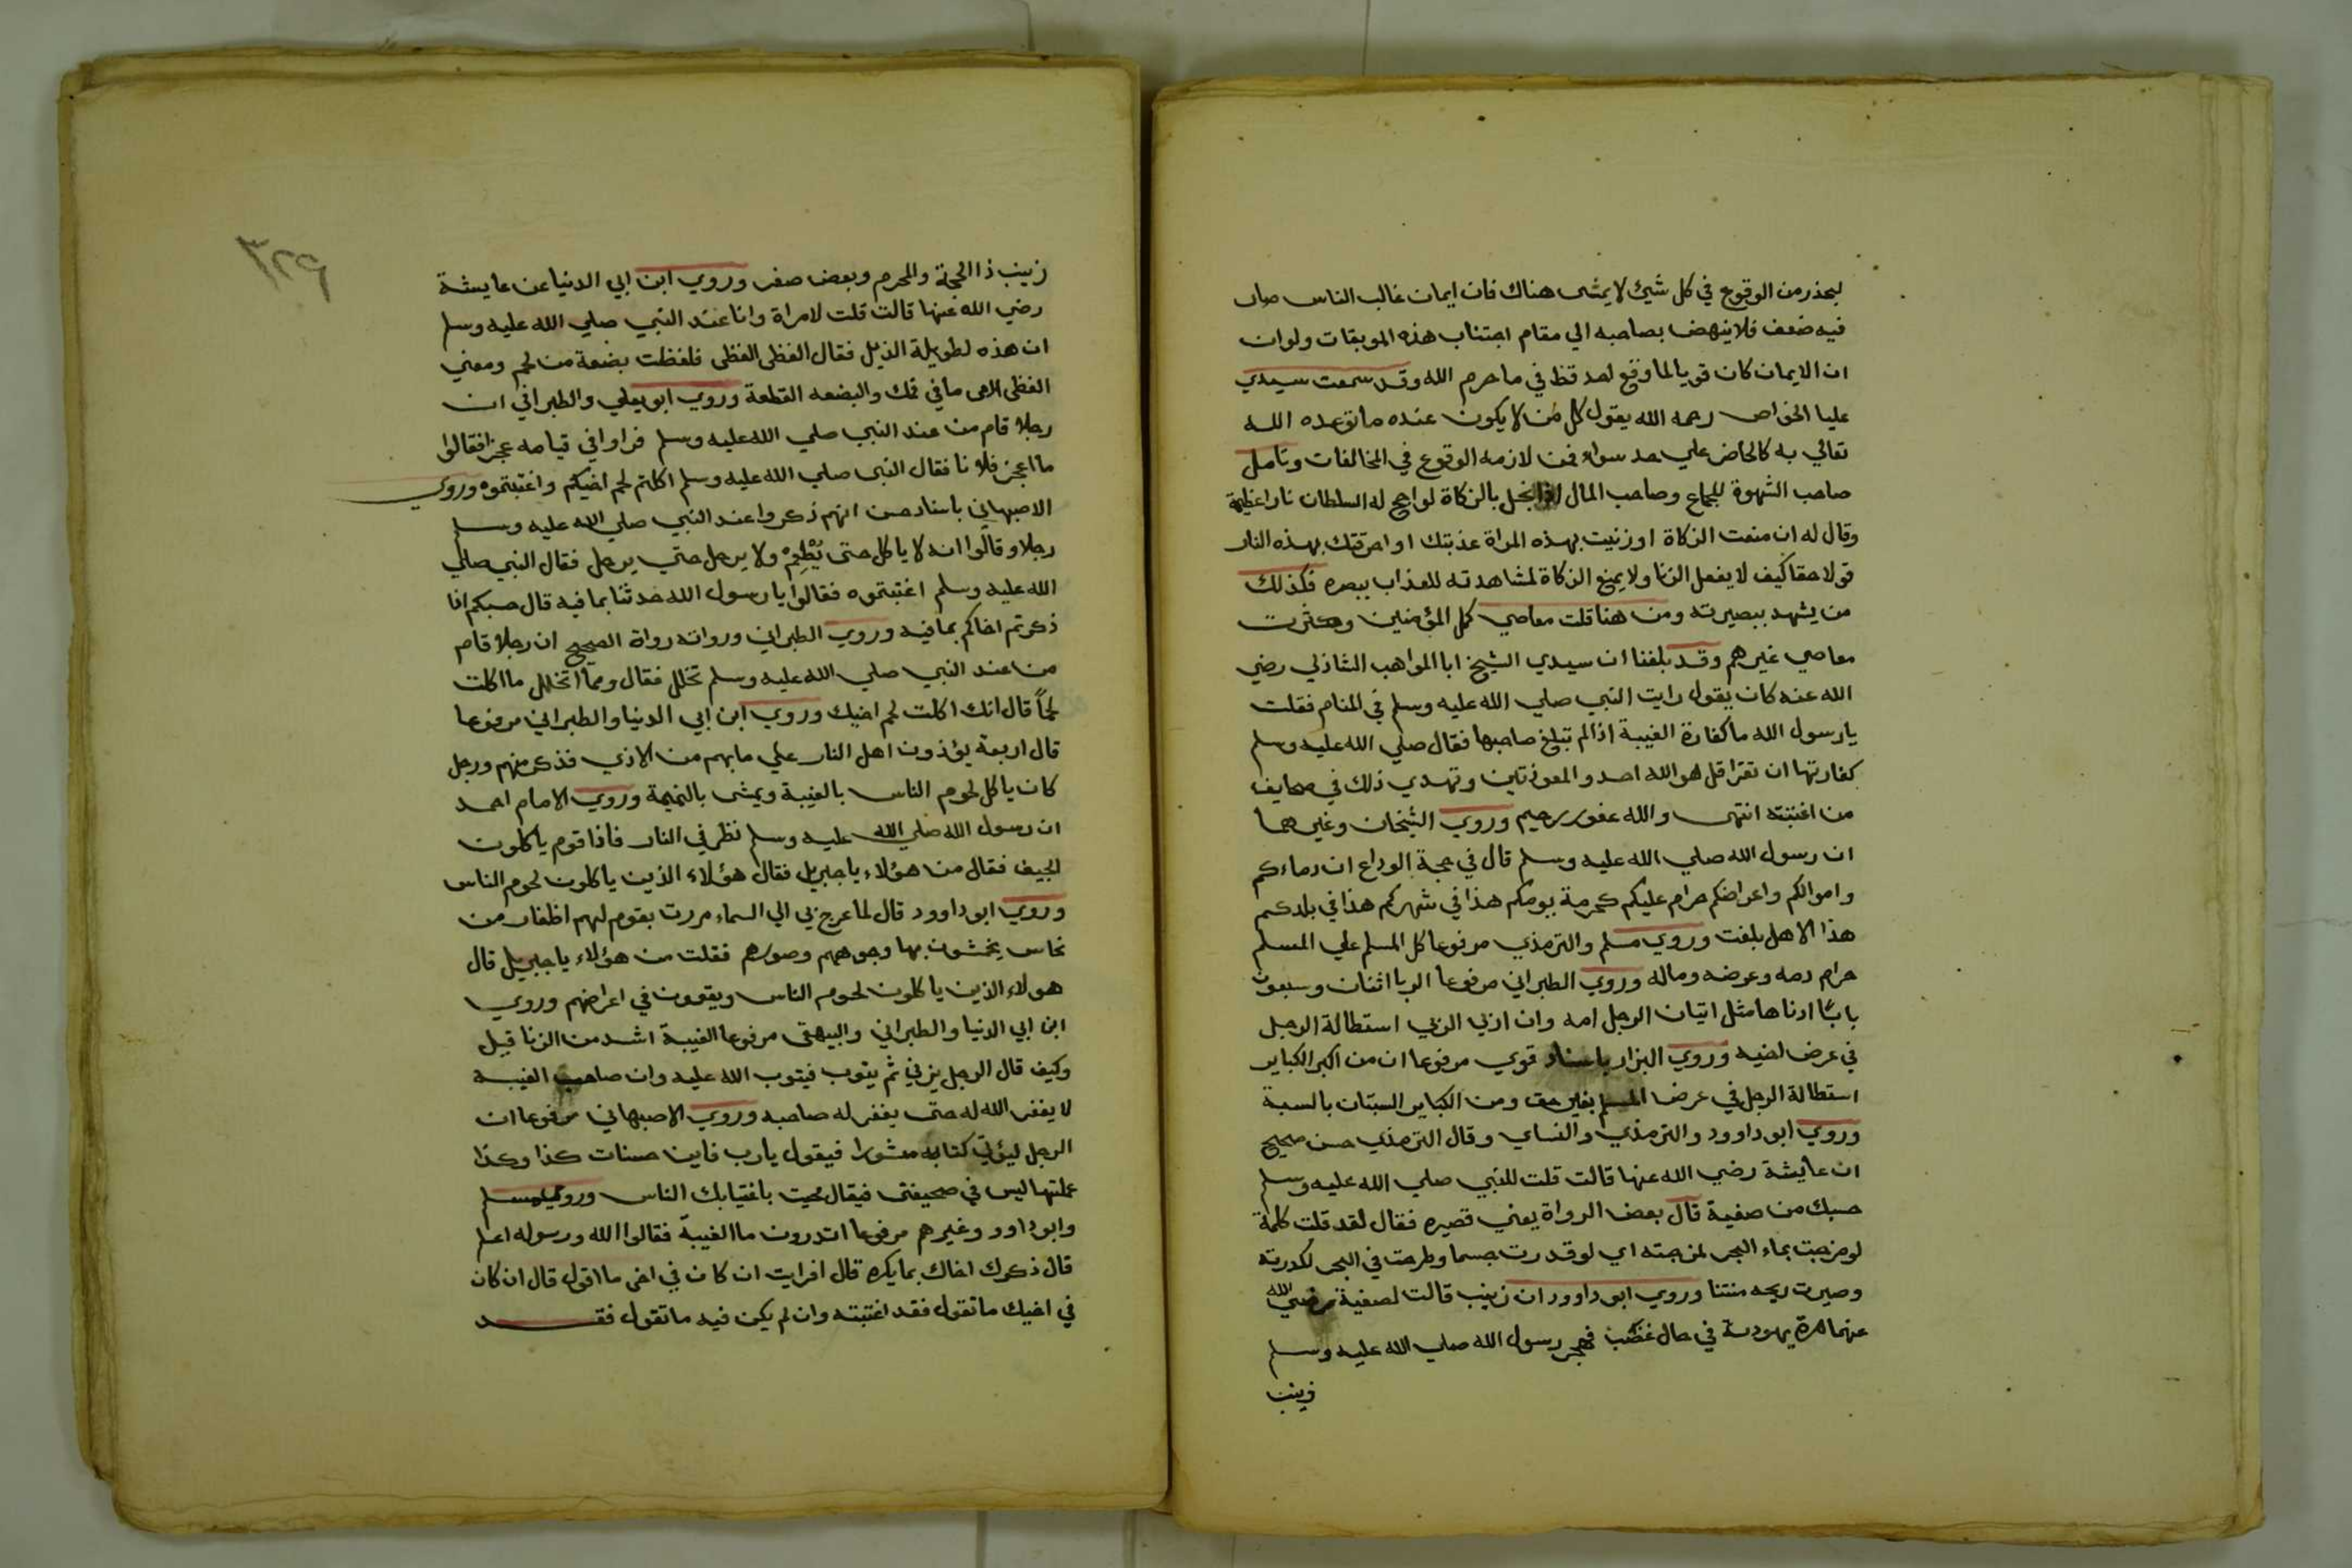 ليحذر من الوقوع في كل شيئ لا يمشى هناك فان ايمان غالب الناس صار
فيه ضعف فلا ينهض بصاحبه الي مقام اجتناب هذه الموبقات ولو ان
ان الايمان كان قويا لما وقع احد قط في ما حرم الله وقد سمعت سيدي
عليا الخواص رحمه الله يقول كل من لا يكون عنده ما توعده الله
تعالي به كالحاضر علي حد سواء فمن لازمه الوقوع في المخالفات وتامل
صاحب الشهوة للجماع وصاحب المال اذا بخل بالزكاة لو اجج له السلطان نارا عظيمة
وقال له ان منعت الزكاة او زنيت بهذه المراة عذبتك او احرقتك بهذه النار
قولا حقا كيف لا يفعل الزنا ولا يمنع الزكاة لمشاهدته للعذاب ببصره فكذلك
من يشهد ببصيرته ومن هنا قلت معاصي كمل المؤمنين وكثرت
معاصي غيرهم وقد بلغنا ان سيدي الشيخ ابا المواهب الشاذلي رضي
الله عنه كان يقول رايت النبي صلي الله عليه وسلم في المنام فقلت
يارسول الله ما كفارة الغيبة اذا لم تبلغ صاحبها فقال صلي الله عليه وسلم
كفارتها ان تقرا قل هو الله احد والمعوذتين وتهدي ذلك في صحايف
من اغتبته انتهى والله غفور رحيم وروي الشيخان وغيرهما
ان رسول الله صلي الله عليه وسلم قال في حجة الوداع ان دماءكم
واموالكم واعراضكم حرام عليكم كحرمة يومكم هذا في شهركم هذا في بلدكم
هذا الا هل بلغت وروي مسلم والترمذي مرفوعا كل المسلم علي المسلم
حرام دمه وعرضه وماله وروي الطبراني مرفوعا الربا اثنان وسبعون
بابًا ادناها مثل اتيان الرجل امه وان اربي الربي استطالة الرجل
في عرض اخيه وروي البزار باسناد قوي مرفوعا ان من اكبر الكباير
استطالة الرجل في عرض المسلم بغير حق ومن الكباير السبتان بالسبة
وروي ابو داوود والترمذي والنساي وقال الترمذي حسن صحيح
ان عايشة رضي الله عنها قالت قلت للنبي صلي الله عليه وسلم
حسبك من صفية قال بعض الرواة يعني قصيره فقال لقد قلت كلمة
لو مزجت بماء البحر لمزجته اي لو قدرت جسما وطرحت في البحر لكدرته
وصيرت ريحه منتنا وروي ابو داوود ان زينب قالت لصفية رضي الله
عنهما مرة يهودية في حال غضب فهجر رسول الله صلي الله عليه وسلم
زينب
٣٢٩
زينب ذا الحجة والمحرم وبعض صفر وروي ابن ابي الدنيا عن عايشة
رضي الله عنها قالت قلت لامراة وانا عند النبي صلي الله عليه وسلم
ان هذه لطويلة الذيل فقال الفظى الفظى فلفظت بضعة من لحم ومعني
الفظى ارمى ما في فمك والبضعه القطعة وروي ابو يعلي والطبراني ان
رجلا قام من عند النبي صلي الله عليه وسلم فراوا في قيامه عجزا فقالوا
ما اعجز فلانا فقال النبي صلي الله عليه وسلم اكلتم لحم اخيكم واغتبتموه وروي
الاصبهاني باسناد حسن انهم ذكروا عند النبي صلي الله عليه وسلم
رجلا وقالوا انه لا ياكل حتى يُطْعِمَهُ ولا يرحل حتي يرحل فقال النبي صلي
الله عليه وسلم اغتبتموه فقالوا يا رسول الله حدثنا بما فيه قال حسبكم اذا
ذكرتم اخاكم بما فيه وروي الطبراني ورواته رواة الصحيح ان رجلا قام
من عند النبي صلي الله عليه وسلم تخلل فقال ومما اتخلل ما اكلت
لحمًا قال انك اكلت لحم اخيك وروي ابن ابي الدنيا والطبراني مرفوعا
قال اربعة يؤذون اهل النار علي ما بهم من الاذي فذكر منهم ورجل
كان ياكل لحوم الناس بالغيبة ويمشى بالنميمة وروي الامام احمد
ان رسول الله صلي الله عليه وسلم نظر في النار فاذا قوم ياكلون
الجيف فقال من هؤلاء يا جبريل فقال هؤلاء الذين ياكلون لحوم الناس
وروي ابو داوود قال لما عرج بي الي السماء مررت بقوم لهم اظفار من
نحاس يخمشون بها وجوههم وصورهم فقلت من هؤلاء يا جبريل قال
هولاء الذين ياكلون لحوم الناس ويقعون في اعراضهم وروي
ابن ابي الدنيا والطبراني والبيهقى مرفوعا الغيبة اشد من الزنا قيل
وكيف قال الرجل يزني ثم يتوب فيتوب الله عليه وان صاحب الغيبة
لا يغفر الله له حتى يغفر له صاحبه وروي الاصبهاني مرفوعا ان
الرجل ليؤتي كتابه منشورا فيقول يارب فاين حسنات كذا وكذا
عملتها ليس في صحيفتى فيقال محيت باغتيابك الناس وروي مسلم
وابو داود وغيرهم مرفوعا اتدرون ما الغيبة فقالوا الله ورسوله اعلم
قال ذكرك اخاك بما يكره قال افرايت ان كان في اخى ما اقول قال ان كان
في اخيك ما تقول فقد اغتبته وان لم يكن فيه ما تقول فقد